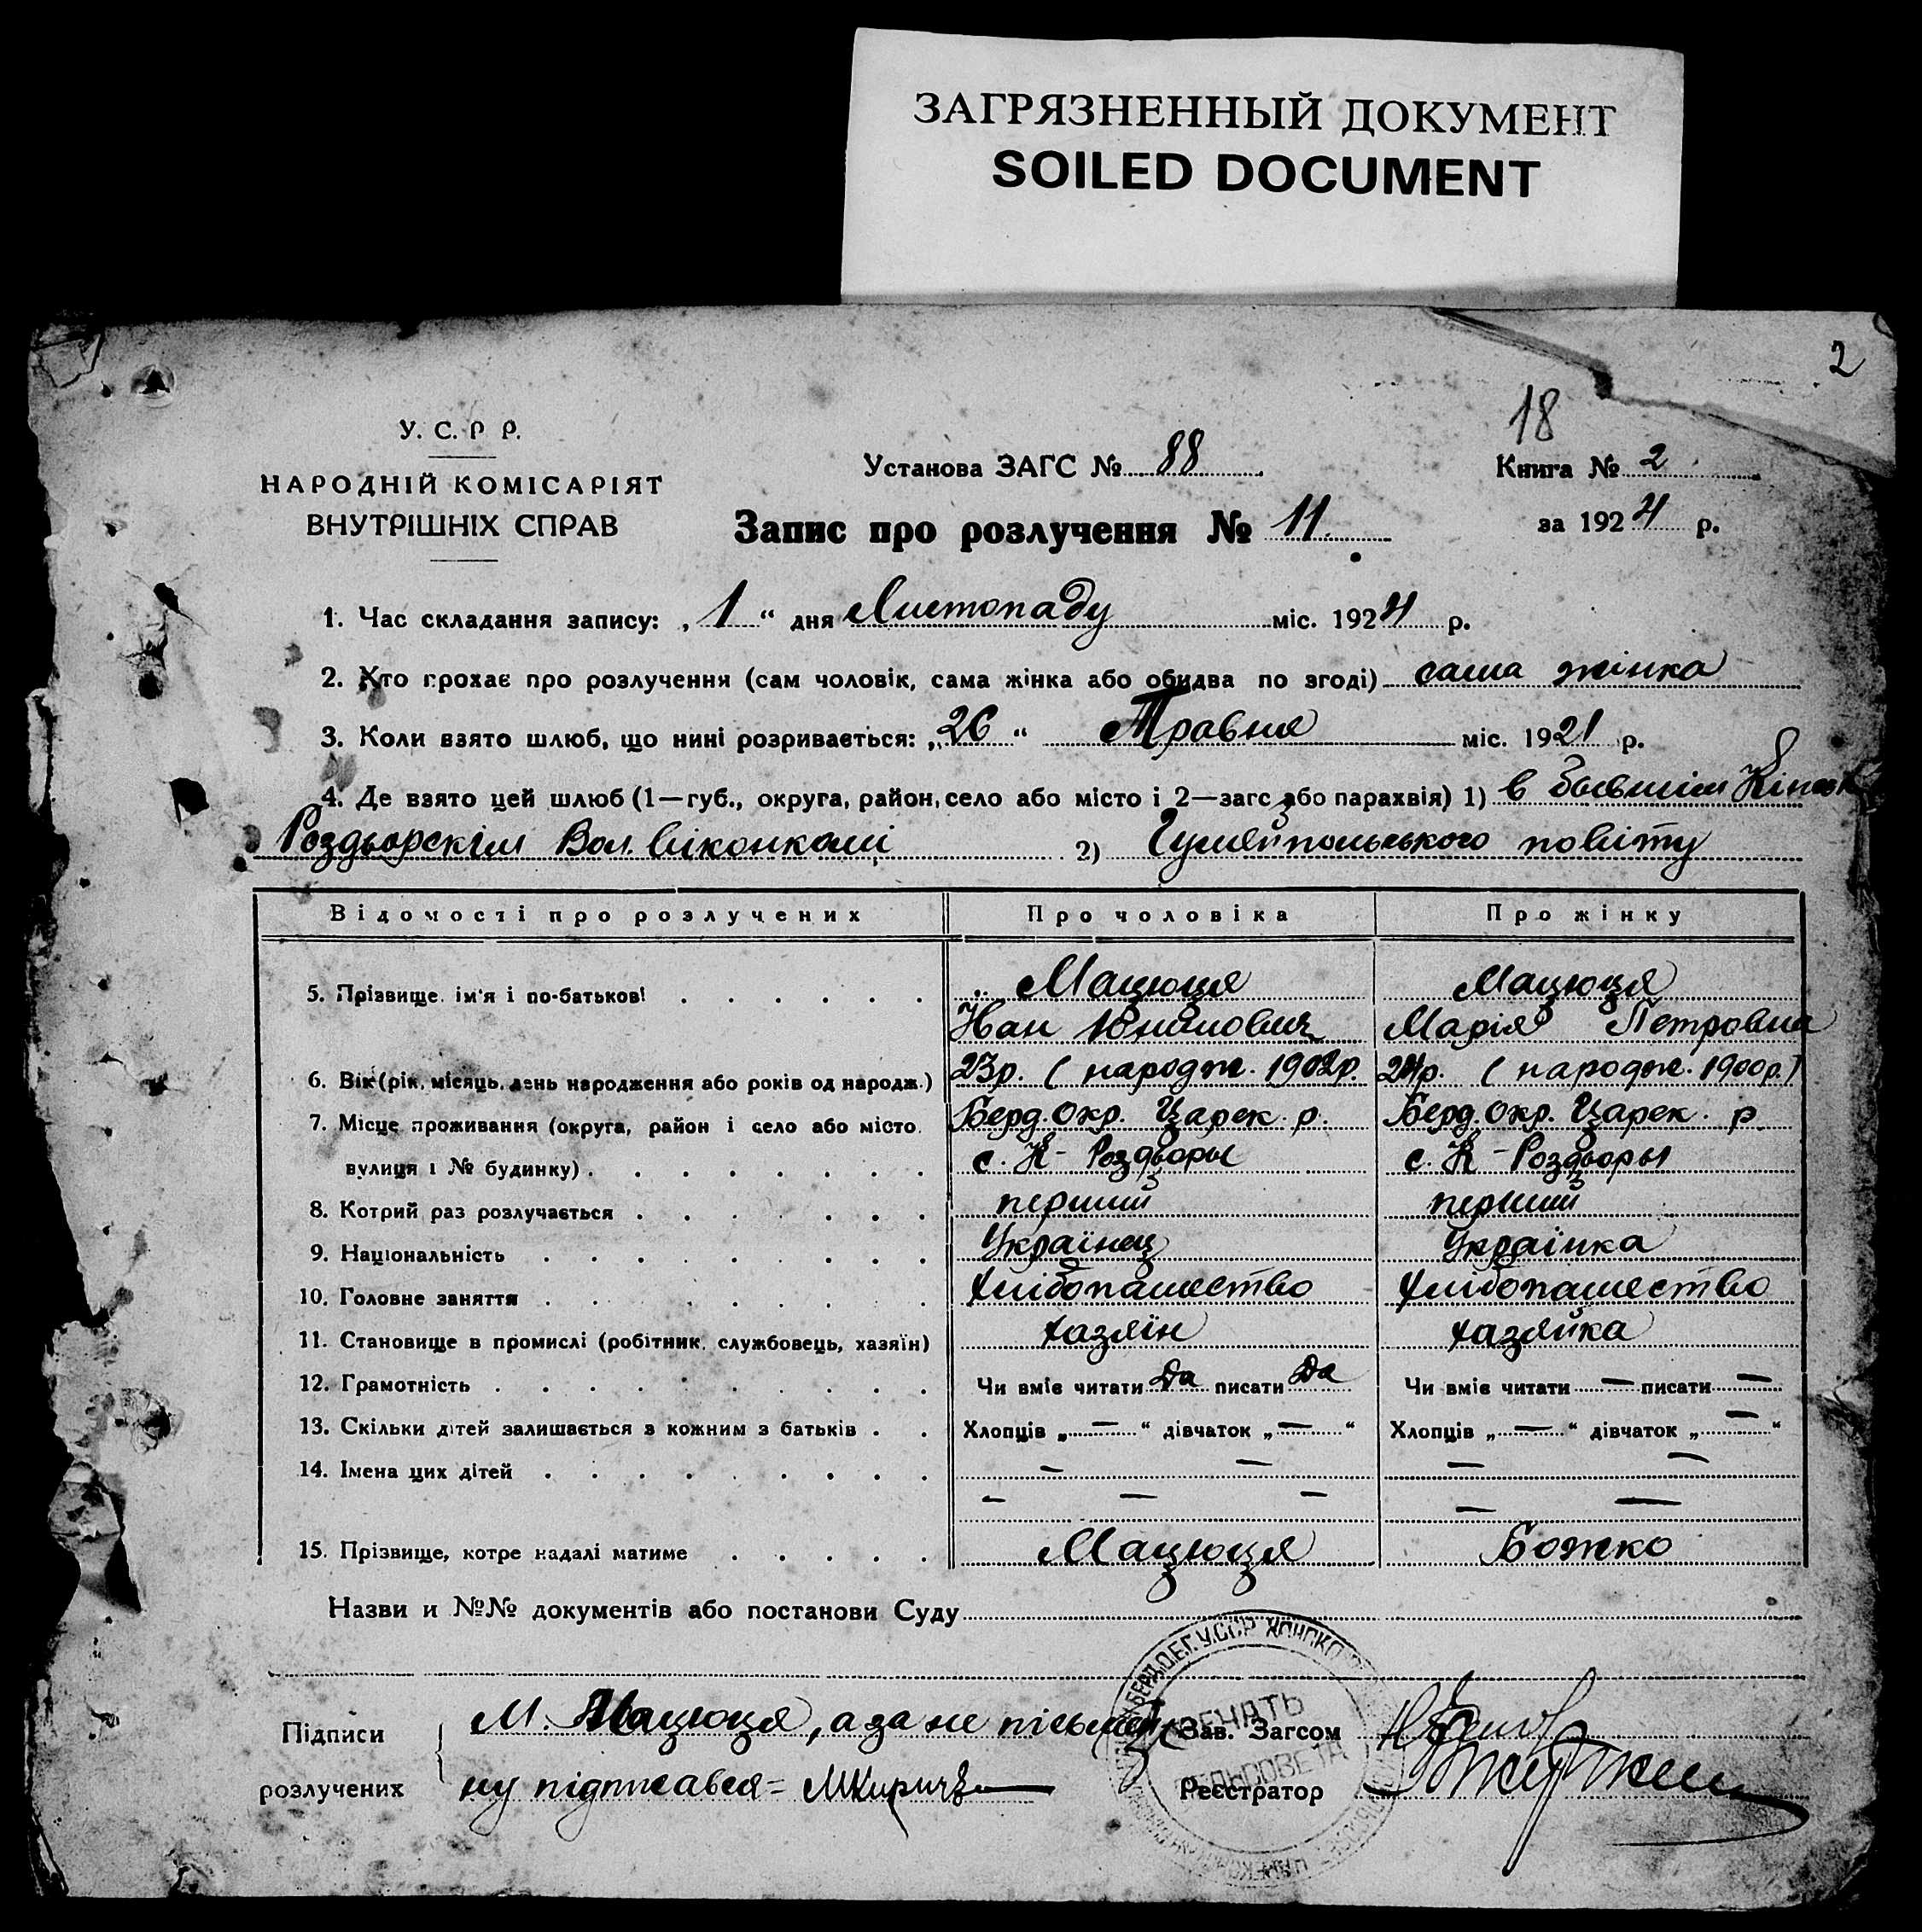 ЗАГРЯЗНЕННЫЙ ДОКУМЕНТ
SOILED DOCUMENT
2
18
У. С. Р Р.
НАРОДНІЙ КОМІСАРІЯТ
ВНУТРІШНІХ СПРАВ
Установа ЗАГС № 88
Книга № 2
Запис про розлучення № 11.
за 1924 р.
1. Час складання запису: „1“ дня Листопаду міс. 1924 р.
2. Хто прохає про розлучення (сам чоловік, сама жінка або обидва по згоді) сама жінка
3. Коли взято шлюб, що нині розривається: „26“ Травня міс. 1921 р.
4. Де взято цей шлюб (1—губ., округа, район, село або місто і 2—загс або парахвія) 1) в бывшім Кінсько
Роздорскім Вол. Віконкомі 2) Гуляйпольського повіту
Відомості про розлучених Про чоловіка Про жінку
5. Прізвище, ім'я і по-батькові Мацюця Мацюця
Іван Марія Петровна
6. Вік (рік, місяць, день народження або років од народж.) 23р. (народж. 1902р. 24р. (народж. 1900р.)
7. Місце проживання (округа, район і село або місто, Берд. Окр. Царек. р. Берд. Окр. Царек. р.
вулиця і № будинку) с. К-Роздоры с. К-Роздоры
8. Котрий раз розлучається перший перший
9. Національність Українец Українка
10. Головне заняття хлібопашество хлібопашество
11. Становище в промислі (робітник, службовець, хазяїн) хазяїн хазяйка
12. Грамотність Чи вміє читати Да писати Да Чи вміє читати — писати —
13. Скільки дітей залишається з кожним з батьків Хлопців „—“ дівчаток „—“ Хлопців „—“ дівчаток „—“
14. Імена цих дітей — — — —
— — — — —
15. Прізвище, котре надалі матиме Мацюця Божко
Назви и №№ документів або постанови Суду
Підписи М. Мацюця, а за не пісьмен Зав. Загсом
розлучених ну підписався = Реєстратор
ПЕЧАТЬ
СЕЛЬСОВЕТА